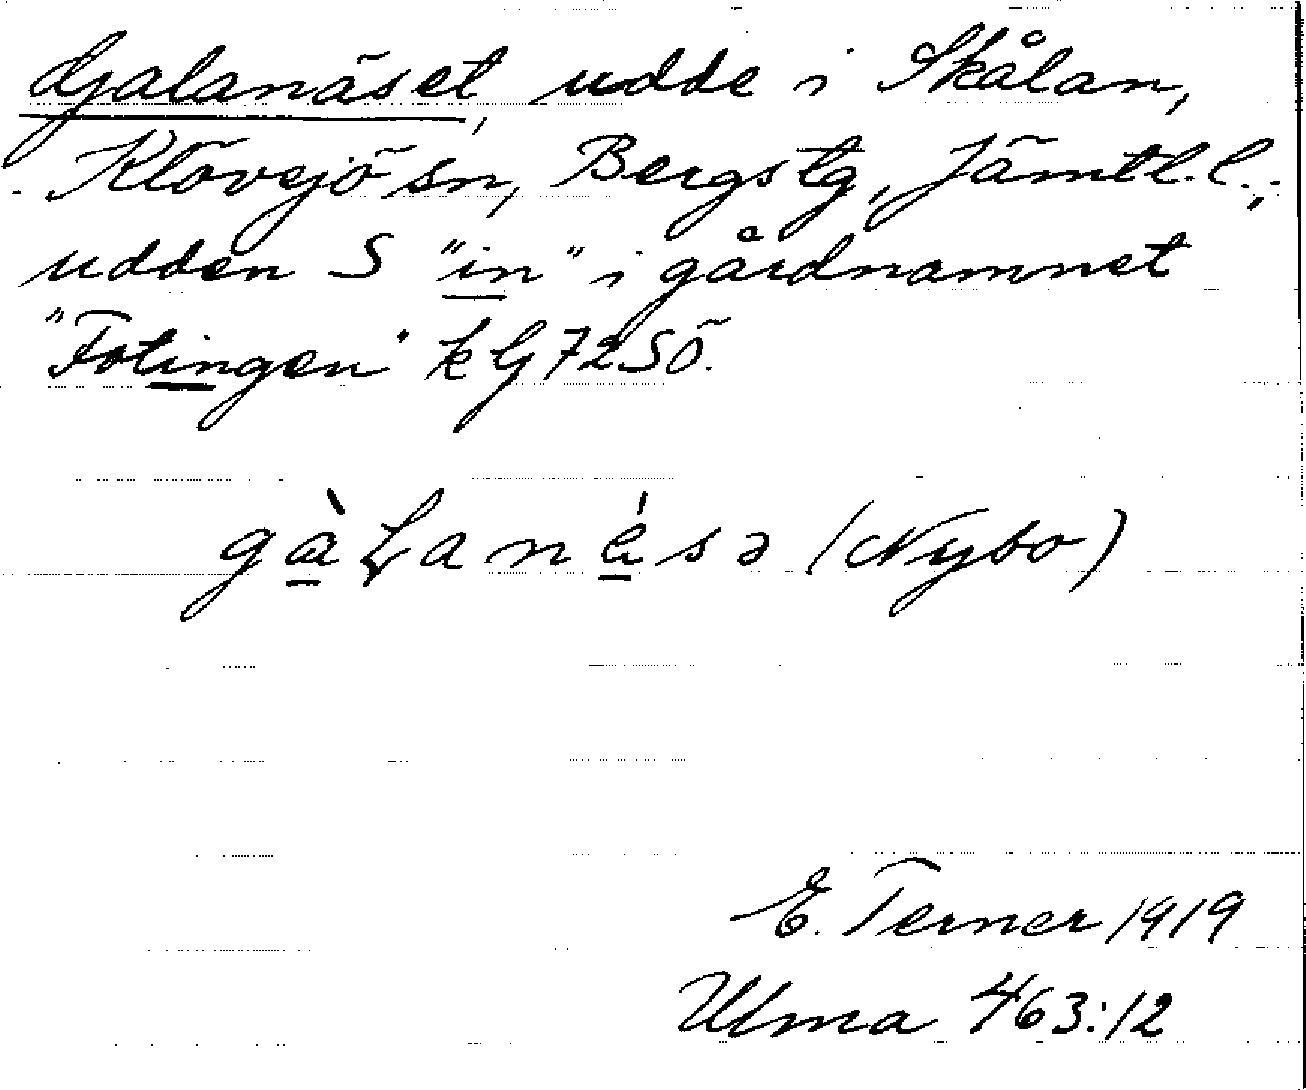 Galanäset, udde i Skålan,
Klövsjö sn, Bergs tg, Jämtl. l.;
udden S "in" i gårdnamnet
"Fotingen" k G 72 SÖ.
gàLanésə (Nybo)
E. Terner 1919
Ulma 463:12